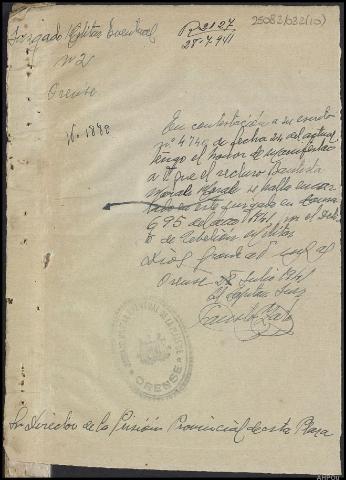 25082/032(10)
R 2127
28-7-941
Juzgado Militar Eventual
nº 2
Orense
Nº 1888
En contestación a su escrito
nº 4740 de fecha 24 del actual
tengo el honor de manifestar
a V. que el recluso Bautista
se halla
a este Juzgado en causa
695 del año 1941, por el deli-
to de Rebelión Militar
Dios guarde a V.
Orense 28 Julio 1941
El Capitan Juez
ORENSE
Sr Director de la Prisión Provincial de esta Plaza
AHPOU